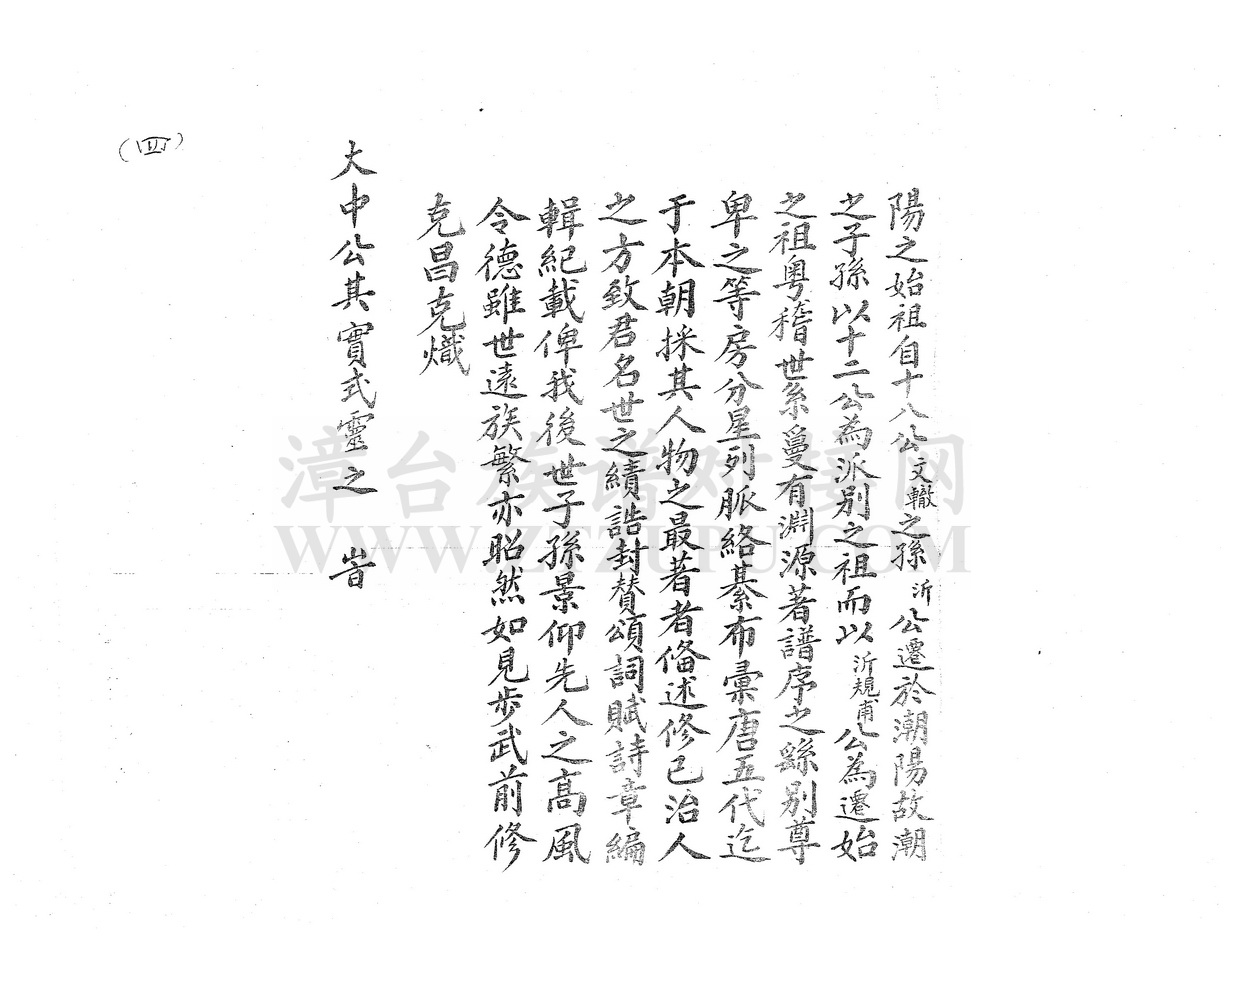 陽之始祖自十八公文轍之孫沂公遷於潮陽故潮
之子孫以十二公為派别之祖而以沂規甫公為遷始
之祖粵稽世系蔓有淵源著譜序之繇别尊
卑之等房分星列脈絡綦布彙唐五代迄
于本朝採其人物之最著者俻述修己治人
之方致君名世之績誥封賛頌詞賦詩章編
輯紀載俾我後世子孫景仰先人之高風
令德雖世遠族繁亦昭然如見步武前修
克昌克熾
大中公其實式靈之 峕
(四)
漳台族谱对接网
WWW.ZTZUPU.COM